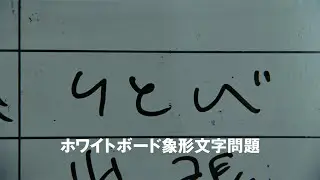 りとべ
ホワイトボード象形文字問題